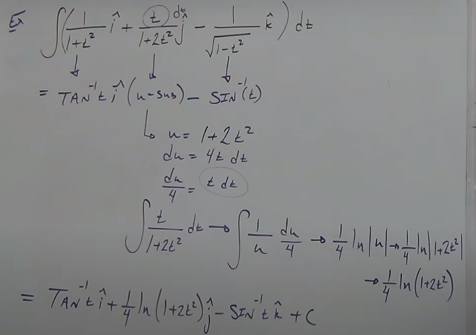 Ex
∫(1/(1+t²) î + t/(1+2t²) dt ĵ − 1/√(1−t²) k̂) dt
= TAN⁻¹t î (u-sub) − SIN⁻¹(t)
u = 1+2t²
du = 4t dt
du/4 = t dt
∫ t/(1+2t²) dt → ∫ 1/u du/4 → 1/4 ln|u| → 1/4 ln|1+2t²|
→ 1/4 ln(1+2t²)
= TAN⁻¹t î + 1/4 ln(1+2t²) ĵ − SIN⁻¹t k̂ + C